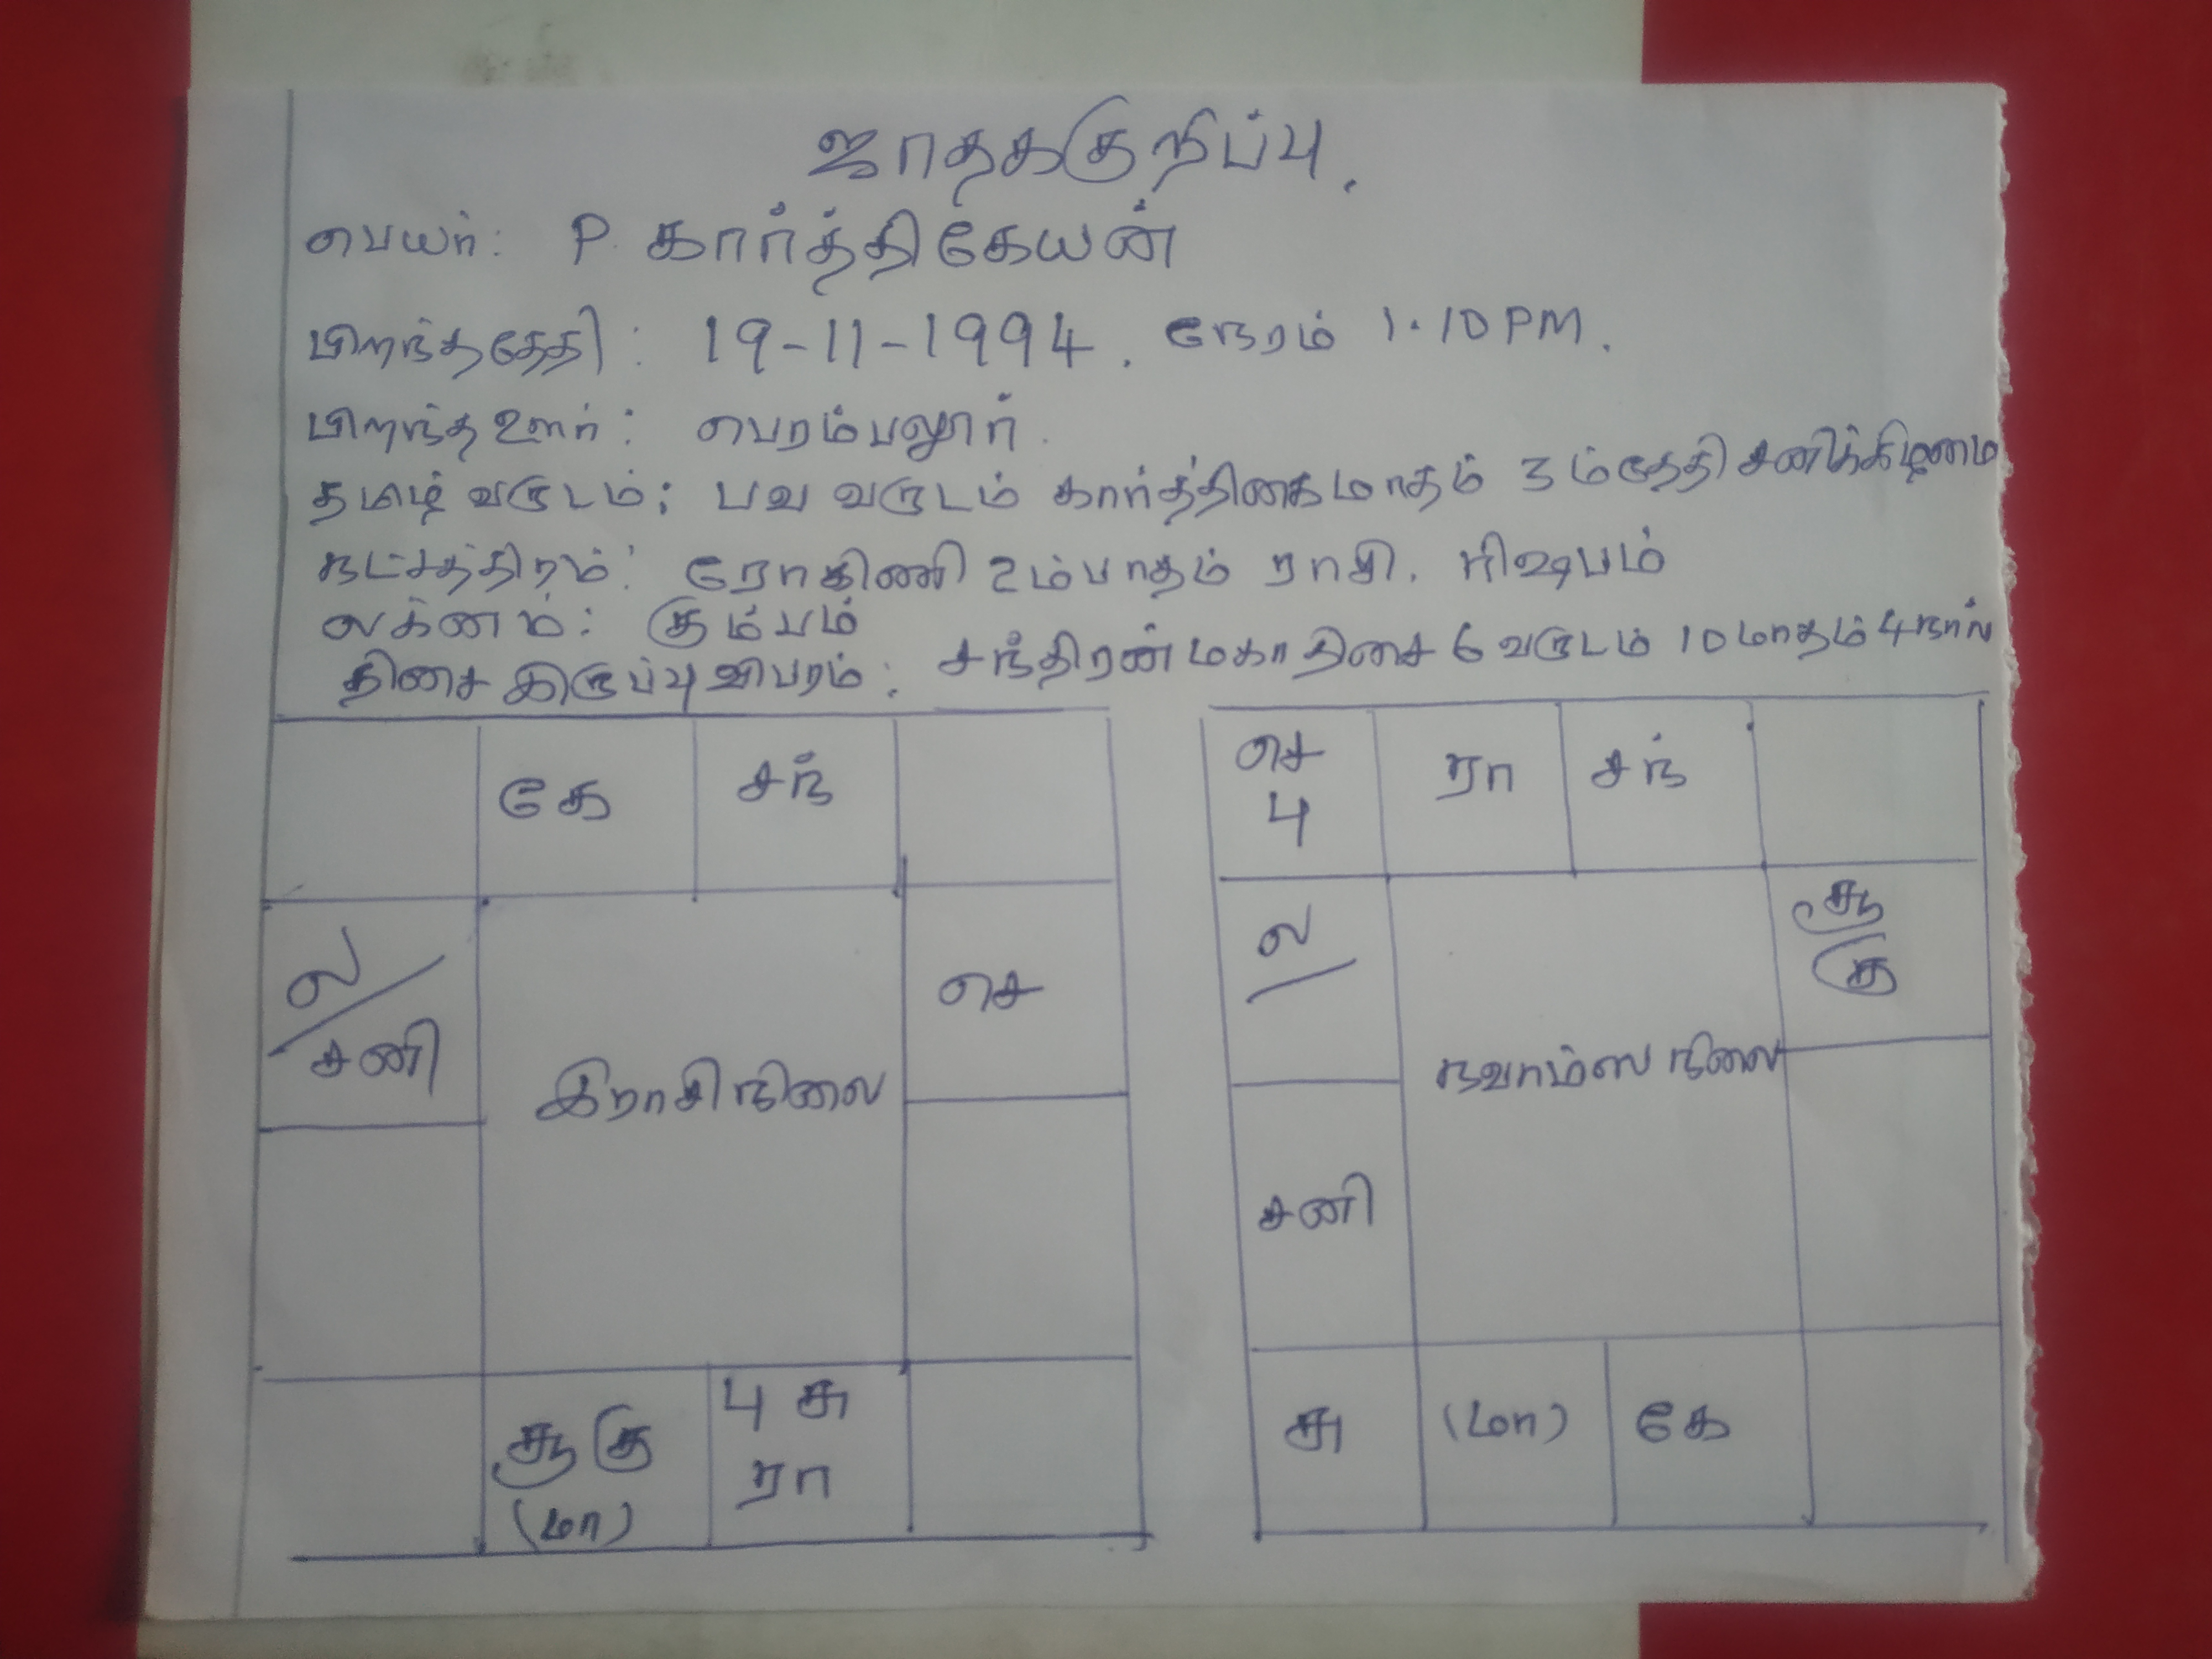 ஜாதககுறிப்பு.
பெயர்: P. கார்த்திகேயன்
பிறந்ததேதி: 19-11-1994. நேரம் 1.10 PM.
பிறந்த ஊர்: பெரம்பலூர்.
தமிழ் வருடம்: பவ வருடம் கார்த்திகை மாதம் 3ம்தேதி சனிக்கிழமை
நட்சத்திரம்: ரோகிணி 2ம்பாதம் ராசி. ரிஷபம்
லக்னம்: கும்பம்
திசை இருப்பு விபரம்: சந்திரன் மகா திசை 6 வருடம் 10 மாதம் 4 நாள்
கே சந்
ல/ சனி
செ
இராசி நிலை
சூ கு (மா)
பு சு ரா
செ பு
ரா சந்
ல/
சூ கு
நவாம்ஸ நிலை
சனி
சு (மா) கே